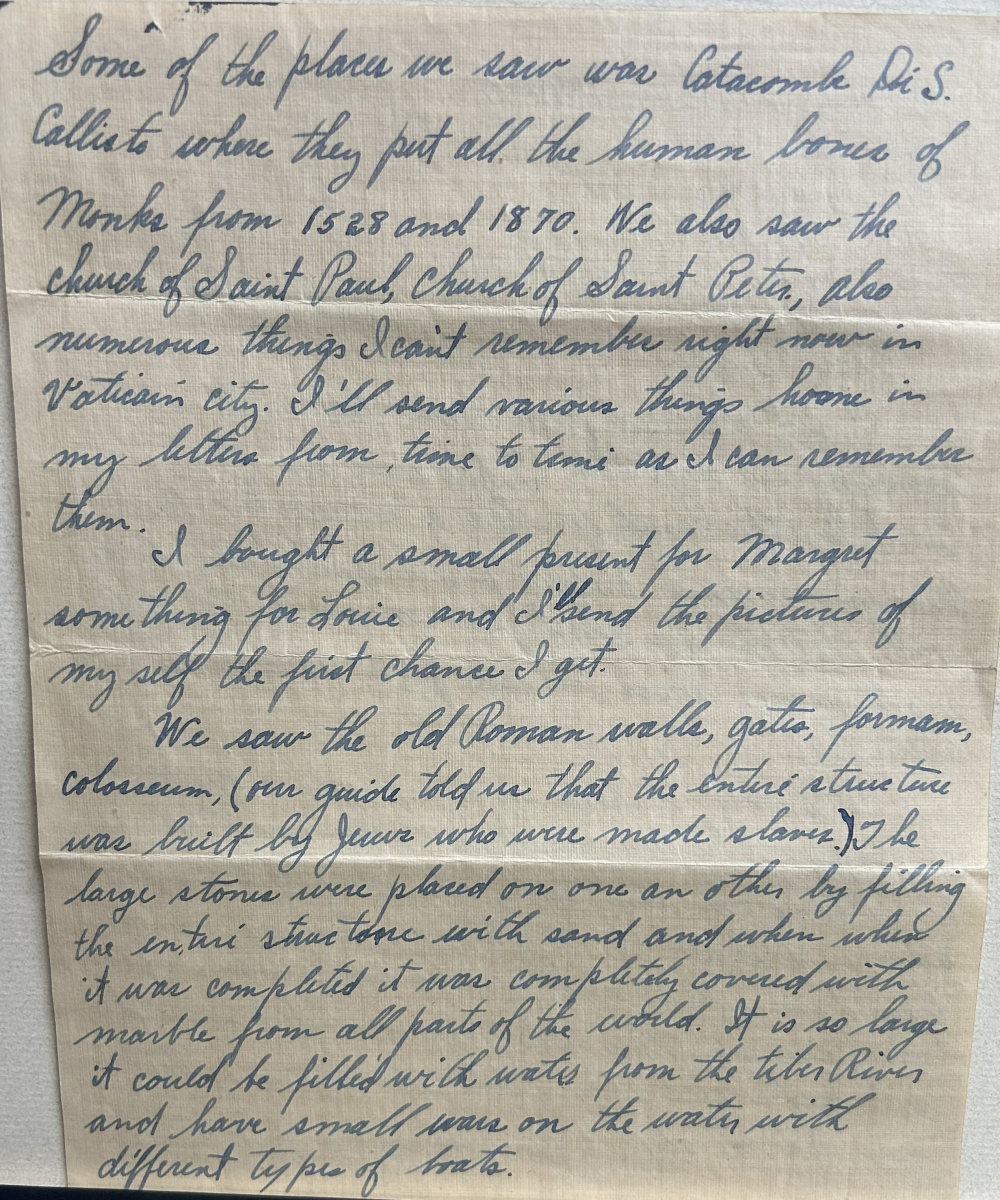 Some of the places we saw was Catacomb Di S.
Callisto where they put all the human bones of
Monks from 1528 and 1870. We also saw the
church of Saint Paul, church of Saint Peter, also
numerous things I can't remember right now in
Vatican city. I'll send various things home in
my letters from time to time as I can remember
them.
I bought a small present for Margret
something for Louie and I'll send the pictures of
my self the first chance I get.
We saw the old Roman walls, gates, formam,
colosseum, (our guide told us that the entire structure
was built by Jews who were made slaves.) The
large stones were placed on one an other by filling
the entire structore with sand and when when
it was completed it was completely covered with
marble from all parts of the world. It is so large
it could be filled with water from the tiber River
and have small wars on the water with
different types of boats.